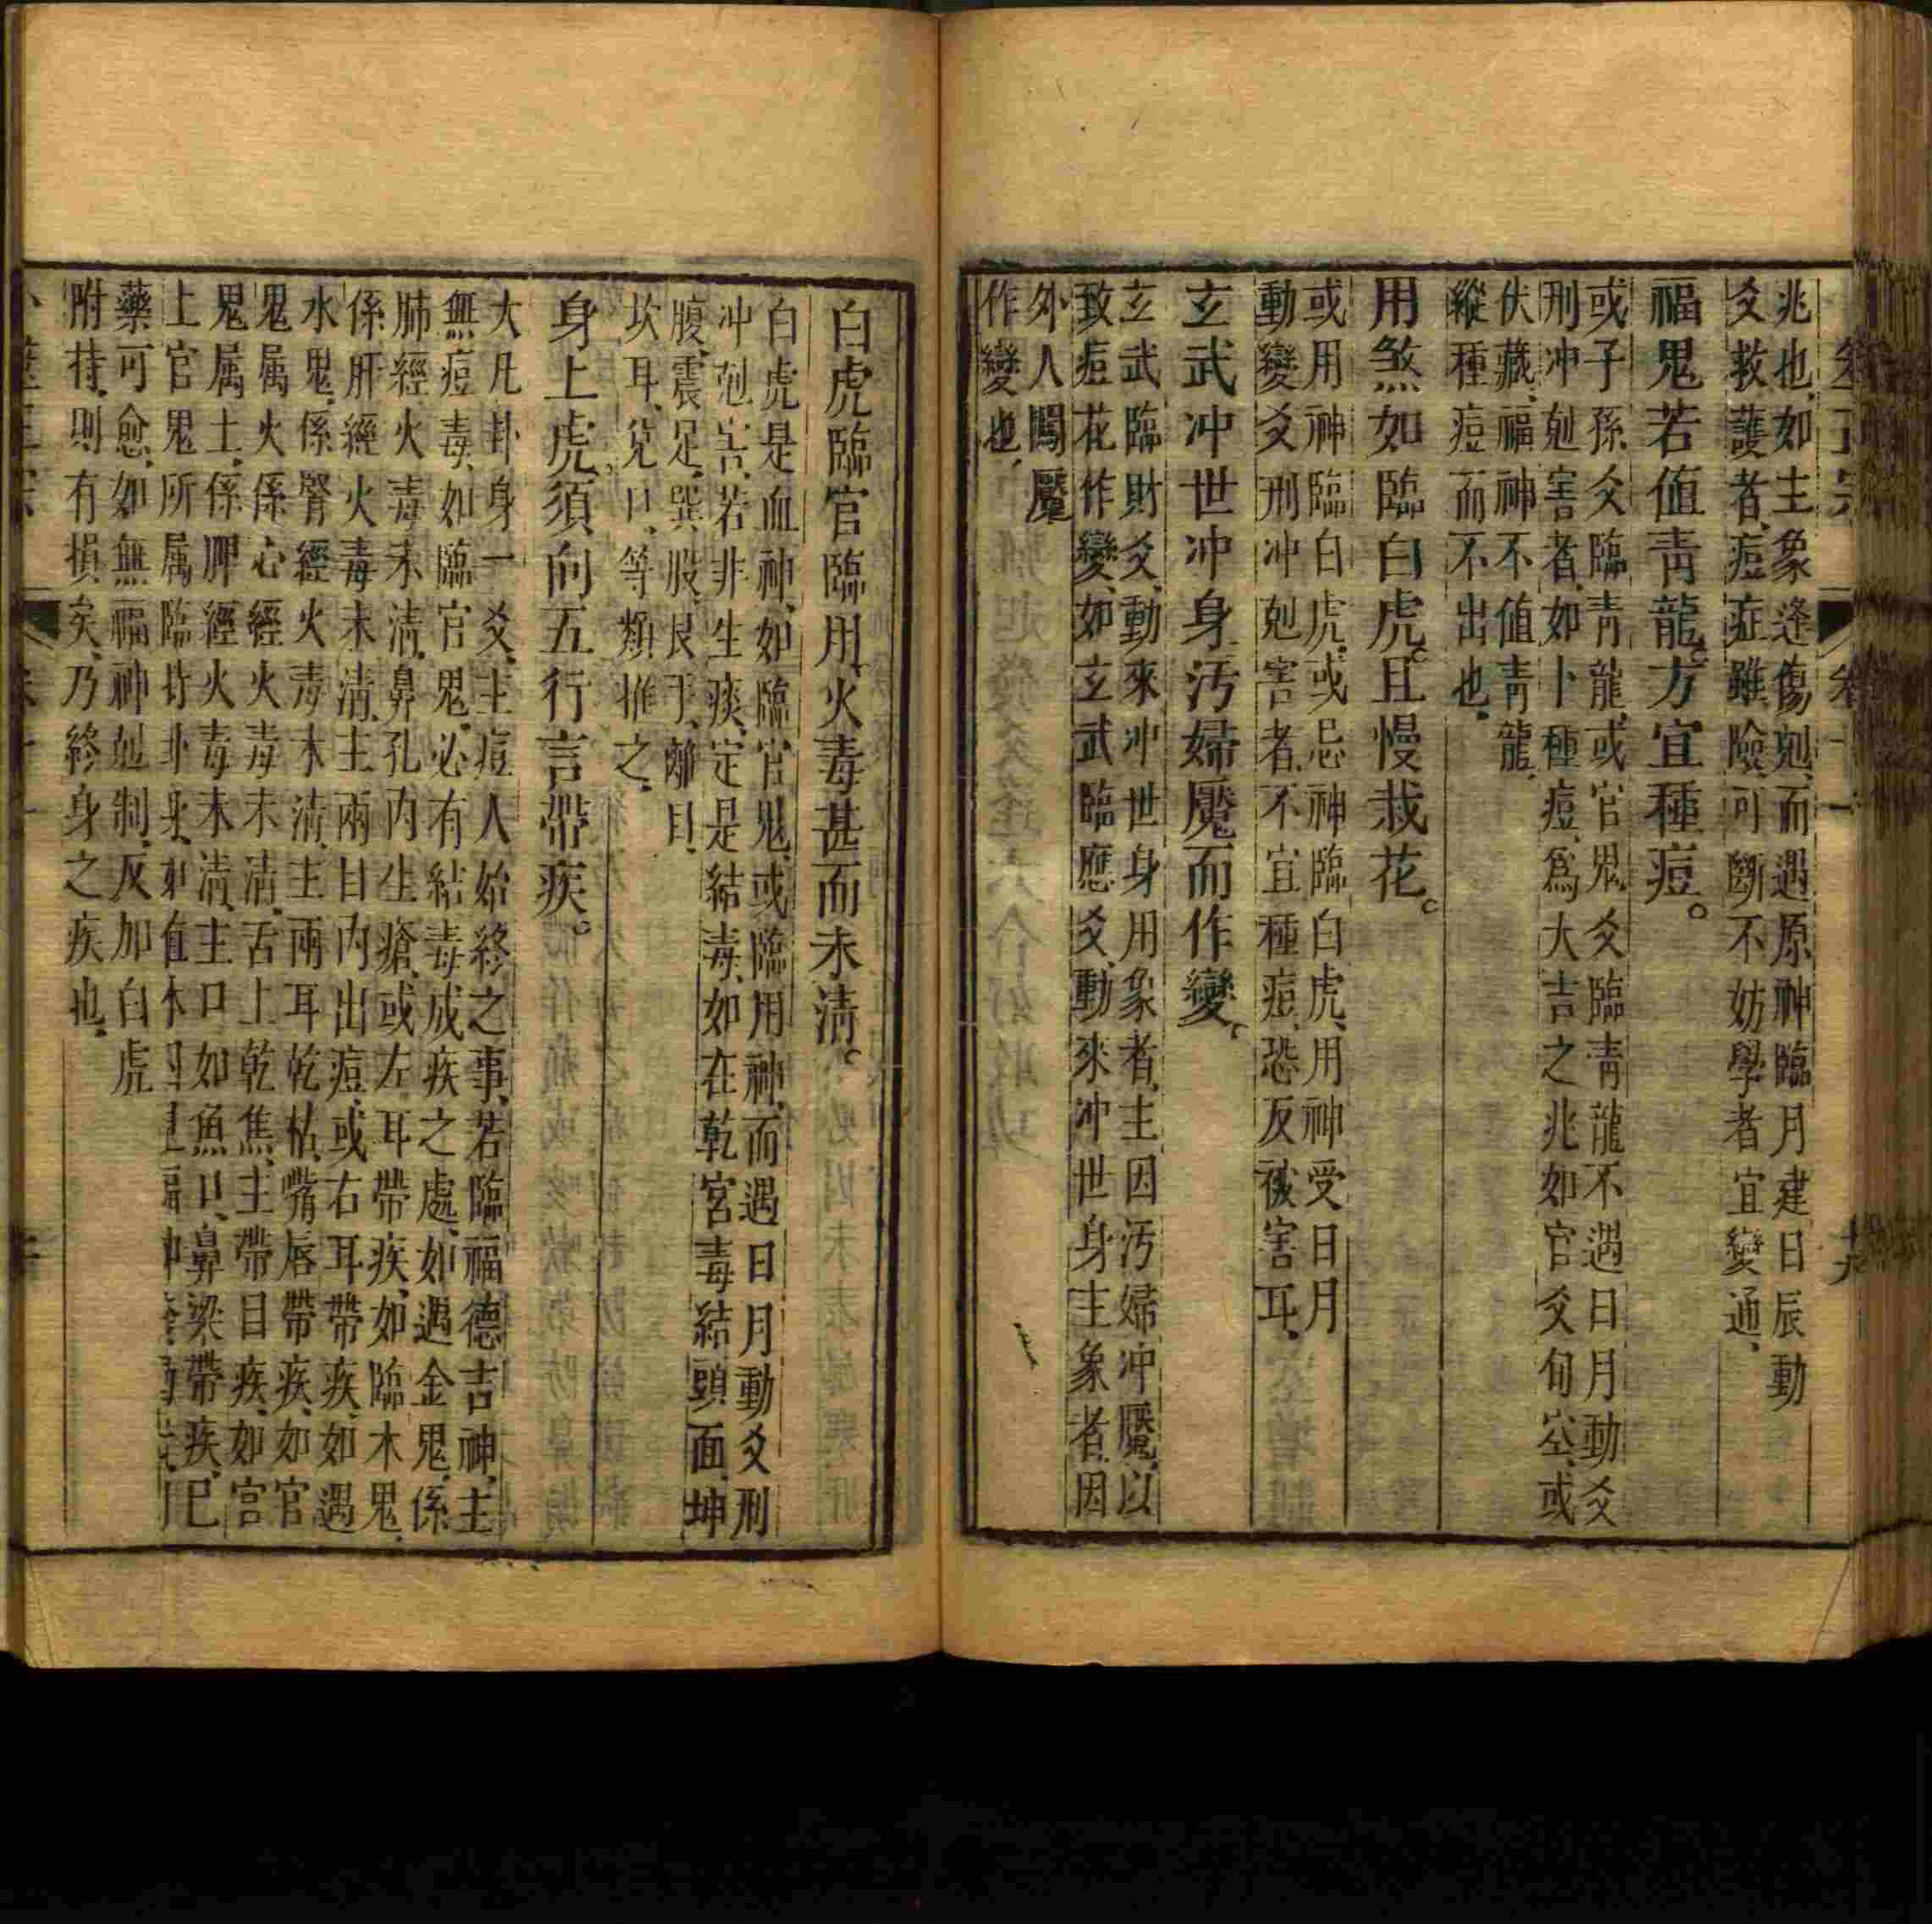 兆也、如主象逢傷剋、而遇原神臨月建日辰動
爻救護者、痘症雖險、可斷不妨、學者宜變通、
福鬼若值靑龍。方宜種痘。
或子孫爻臨靑龍、或官鬼爻臨靑龍不遇日月動爻
刑冲剋害者、如卜種痘、爲大吉之兆如官爻旬空、或
伏藏、福神不值靑龍、
縱種痘而不出也、
用煞如臨白虎。且慢栽花。
或用神臨白虎、或忌神臨白虎、用神受日月
動變爻刑冲剋害者、不宜種痘、恐反被害耳、
玄武冲世冲身汚婦魘而作變。
玄武臨財爻、動來冲世身用象者、主因汚婦冲魘、以
致痘花作變、如玄武臨應爻、動來冲世身主象者、因
外人闖魘
作變也、
白虎臨官臨用、火毒甚而未清。
白虎是血神、如臨官鬼、或臨用神、而遇日月動爻刑
冲剋害、若非生痰、定是結毒、如在乾宮毒結頭面、坤
腹、震足、巽股、艮手、離目、
坎耳、兌口、等類推之、
身上虎、須向五行言帶疾。
大凡卦身一爻、主痘人始終之事、若臨福德吉神、主
無痘毒、如臨官鬼、必有結毒成疾之處、如遇金鬼、係
肺經火毒未清、鼻孔內生瘡、或左耳帶疾、如臨木鬼、
係肝經火毒未清、主兩目內出痘、或右耳帶疾、如遇
水鬼、係腎經火毒未清、主兩耳乾枯、嘴唇帶疾、如官
鬼属火、係心經火毒未清、舌上乾焦、主帶目疾、如官
鬼属土、係脾經火毒未清、主口如魚口、鼻梁帶疾、已
上官鬼所属臨持卦身、如值
藥可愈、如無福神剋制、反加白虎
附持、則有損矣、乃終身之疾也、
卷十一
十九